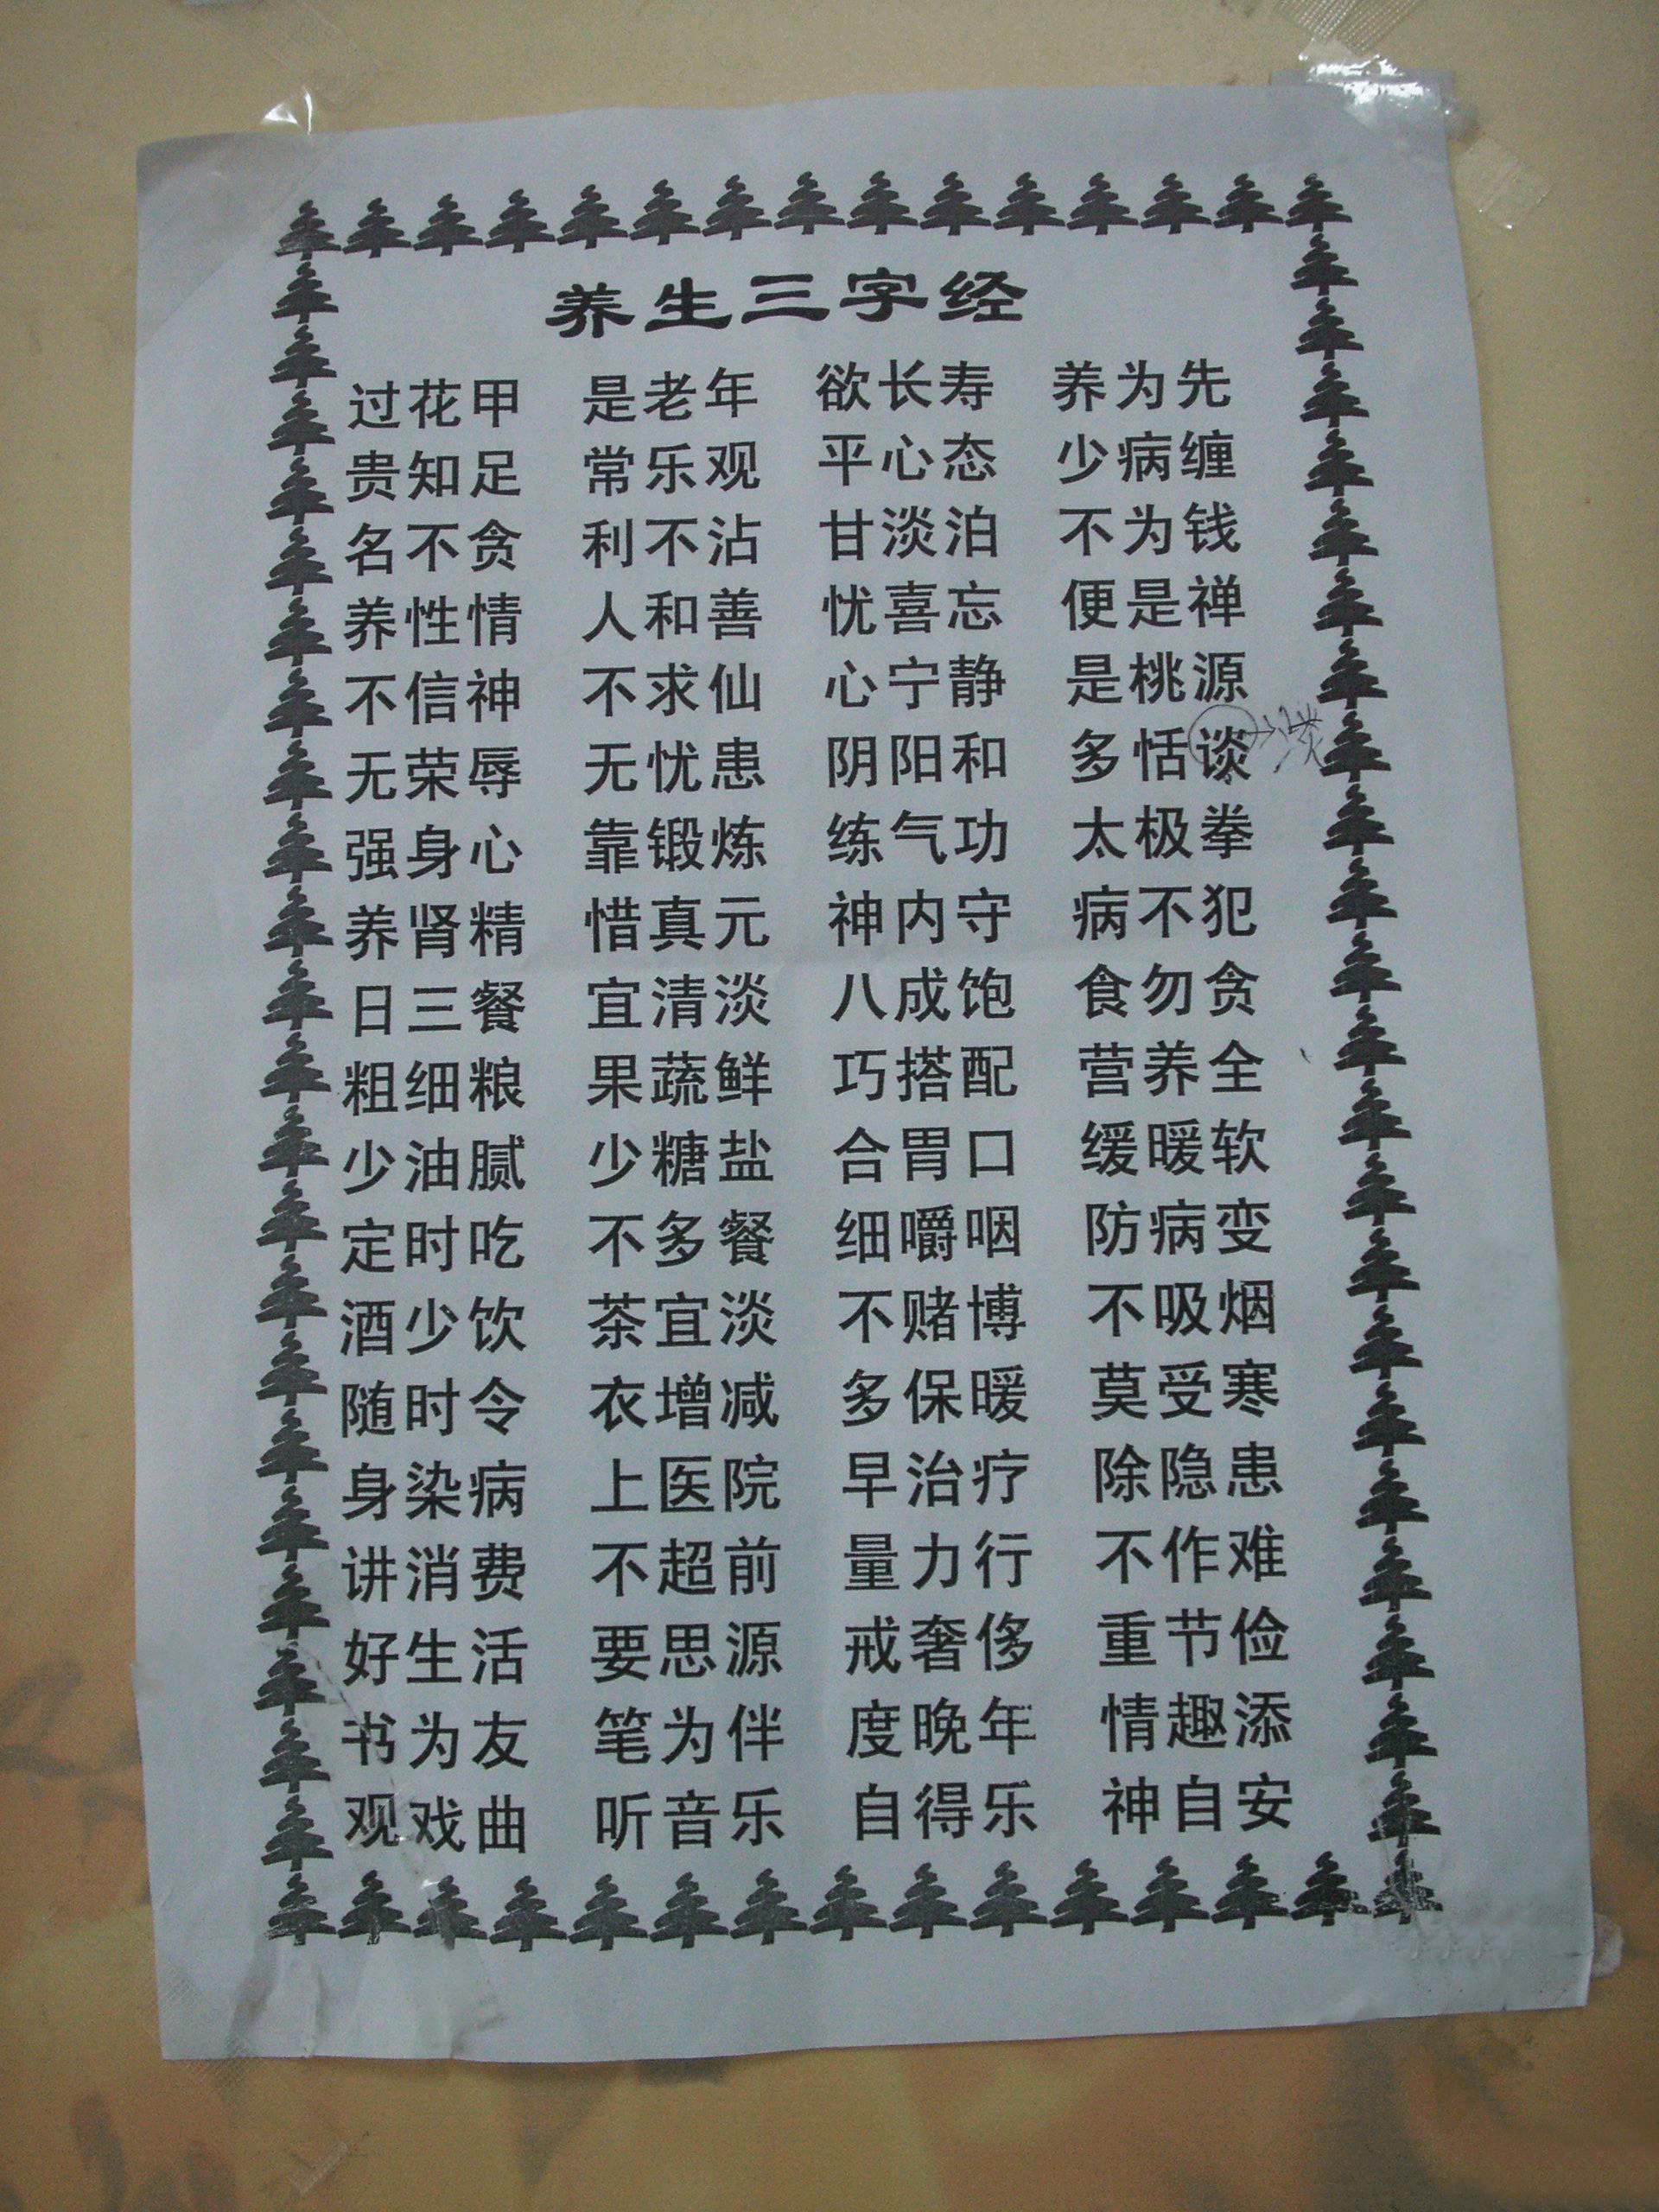 养生三字经
过花甲 是老年 欲长寿 养为先
贵知足 常乐观 平心态 少病缠
名不贪 利不沾 甘淡泊 不为钱
养性情 人和善 忧喜忘 便是禅
不信神 不求仙 心宁静 是桃源
无荣辱 无忧患 阴阳和 多恬谈 淡
强身心 靠锻炼 练气功 太极拳
养肾精 惜真元 神内守 病不犯
日三餐 宜清淡 八成饱 食勿贪
粗细粮 果蔬鲜 巧搭配 营养全
少油腻 少糖盐 合胃口 缓暖软
定时吃 不多餐 细嚼咽 防病变
酒少饮 茶宜淡 不赌博 不吸烟
随时令 衣增减 多保暖 莫受寒
身染病 上医院 早治疗 除隐患
讲消费 不超前 量力行 不作难
好生活 要思源 戒奢侈 重节俭
书为友 笔为伴 度晚年 情趣添
观戏曲 听音乐 自得乐 神自安